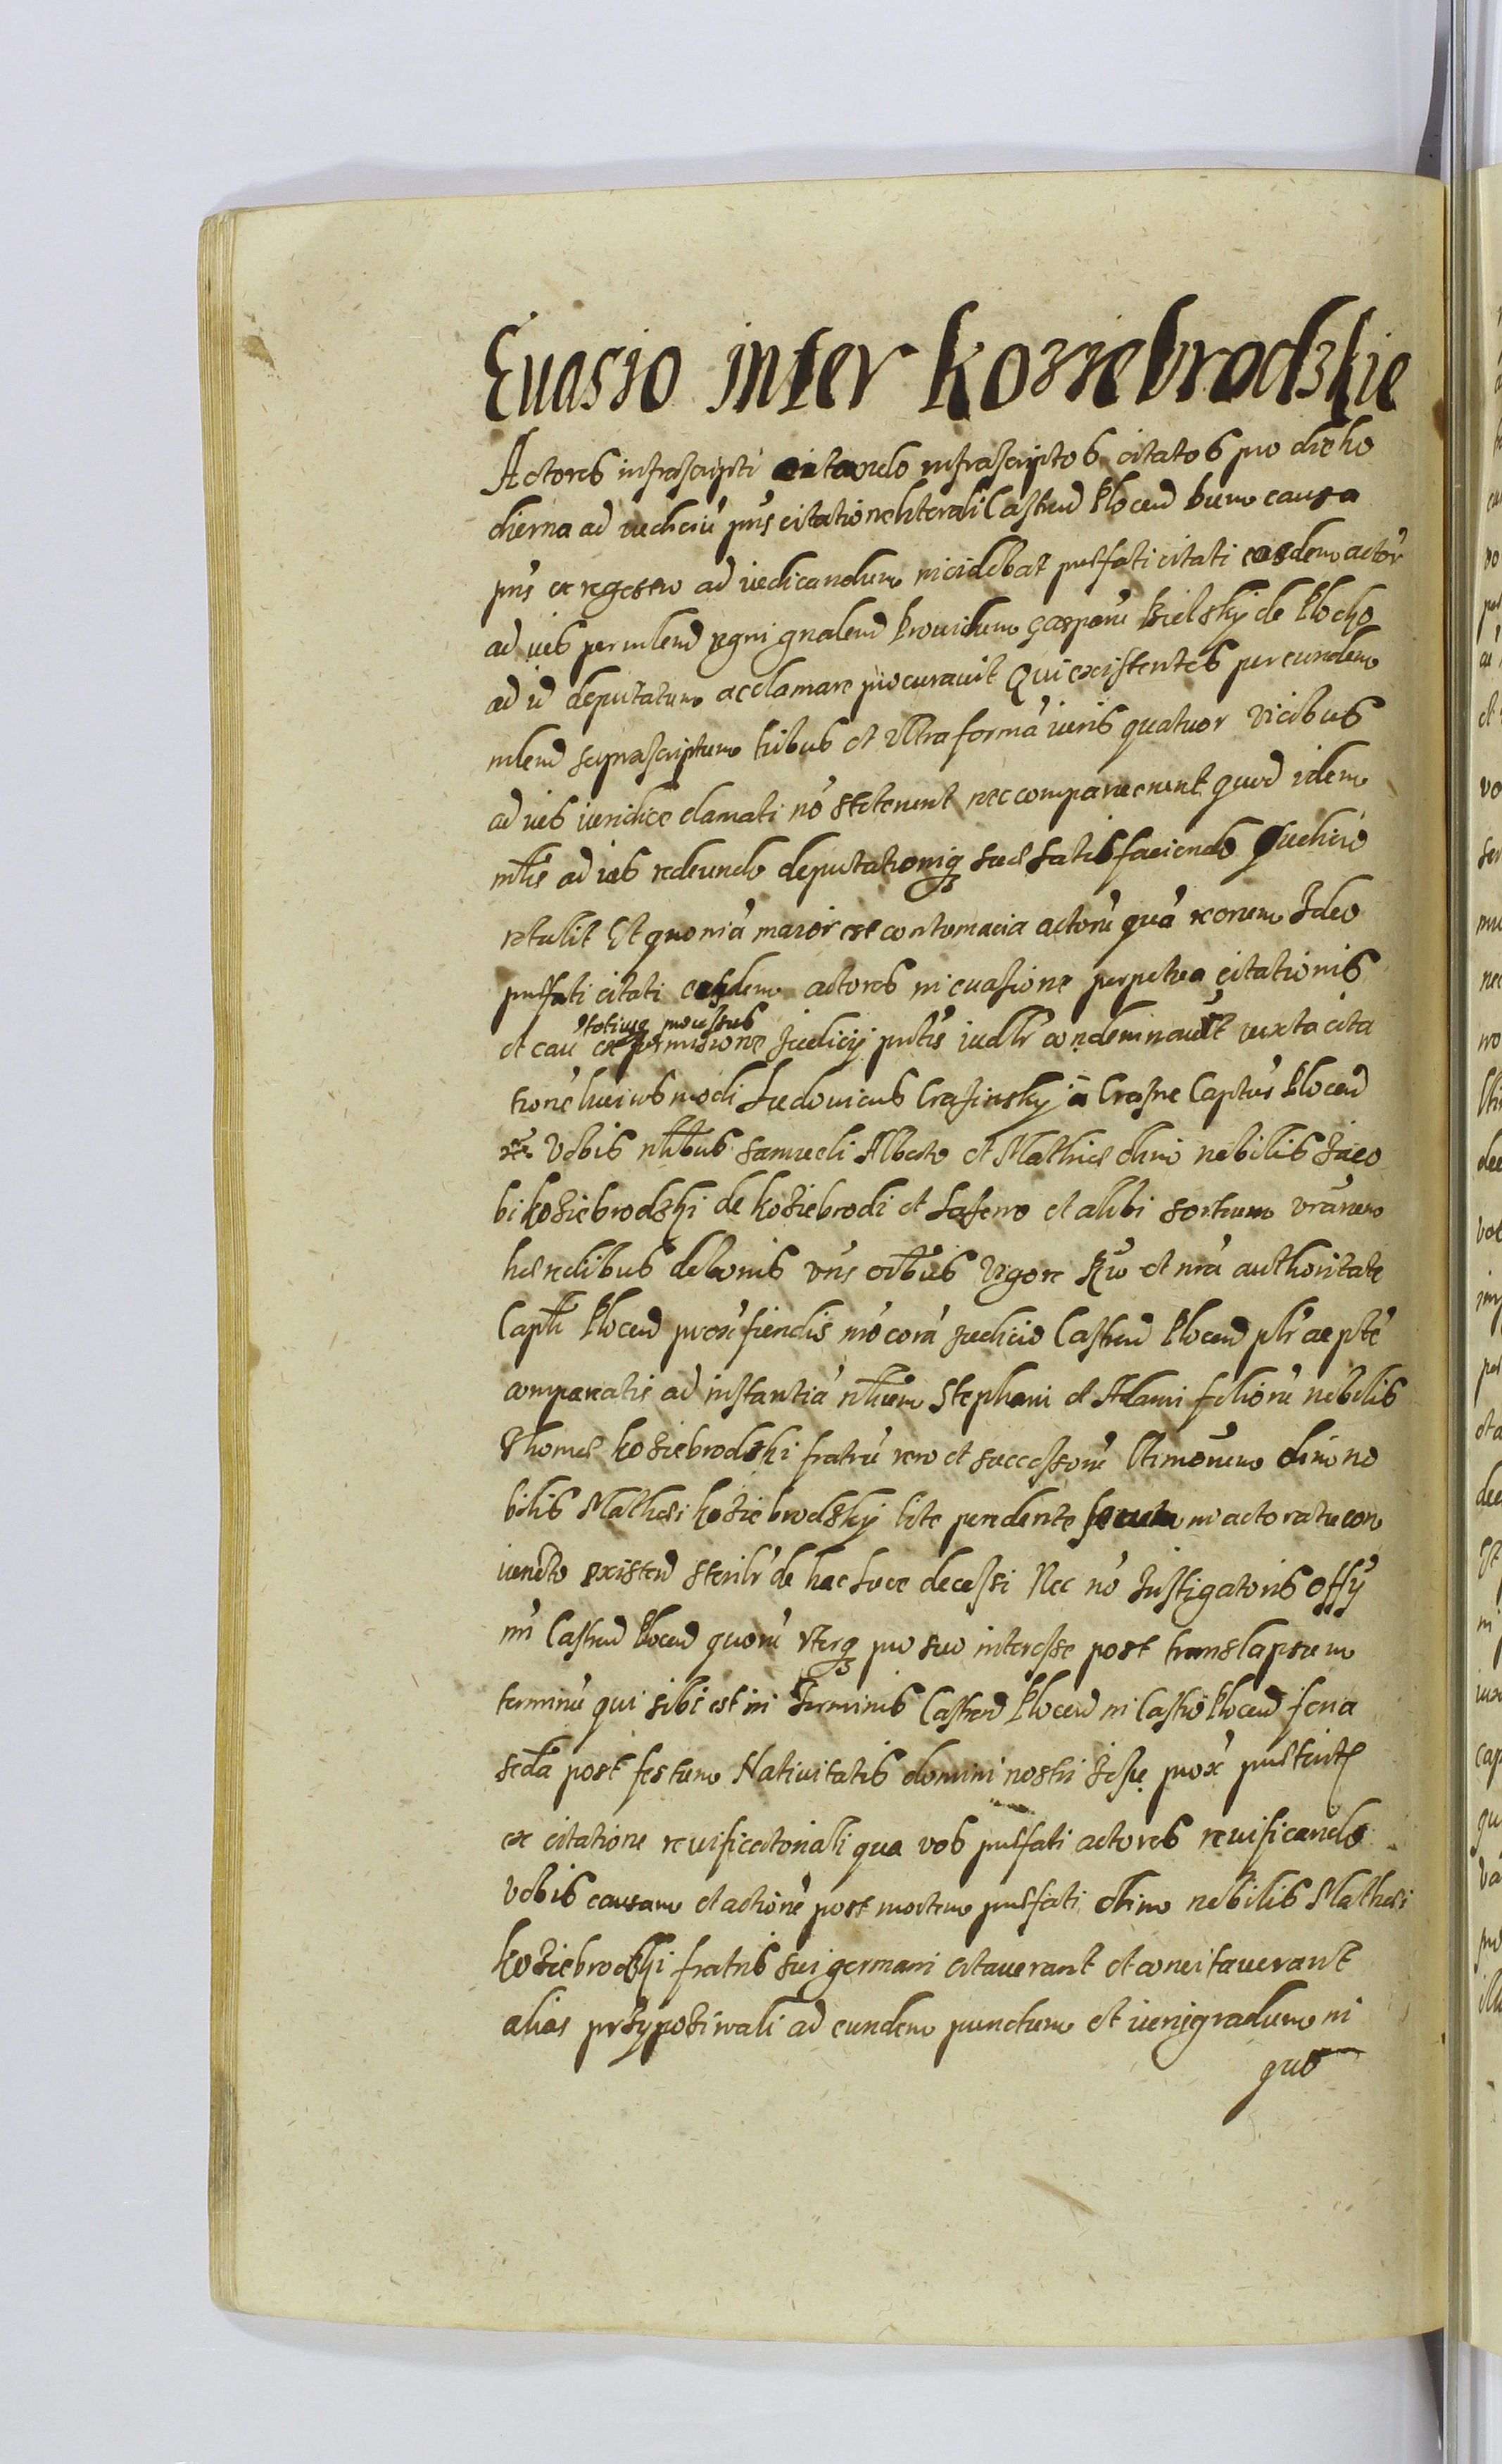 Euasio inter Kosiebrodzkie
Actores infrascripti citando infrascriptos citatos pro die ho
dierna ad iudiciu pns citatione literali Castren Plocen dum causa
pns ex regestro ad iudicandum incidebat praefati citati eosdem actor
ad ius per mlem regni gnalem Prouidum Casparu Bielsky de Plocko
ad id deputatum acclamare procurauit Qui existentes per eundem
mlem suprascriptum tribus et vltra forma iuris quatuor vicibus
ad ius iuridice clamati no steterunt nec comparuerunt quod idem
mlis ad ius redeundo deputationiq suae satisfaciendo Iudicio
retulit Et quonia maior est contumacia actoru qua reorum Ideo
praefati citati eosdem actores in euasione perpetua citationis
totiusq processus
et cau ex permissione Iudicij pntis iudlr condemnauit iuxta cita
tione huiusmodi Ludouicus Crasinsky a Crasne Captus Plocen
Vobis nlibus Samueli Alberto et Mathiae olim nobilis Iaco
bi Kosiebrodzki de Kosiebrodi et Laseno et alibi sortium vrarum
haeredibus de bonis vris oibus Vigore Rw et mra authoritate
Captli Plocen prox fiendis nro cora Iudicio Castren Plocen plr ac pte
comparatis ad instantia nlium Stephani et Adami filioru nobilis
Thomae Kosiebrodzki fratru vero et successoru ltimorum olim no
bilis Mathei Kosiebrodzky lite pendente secum in actoratu con
iuncto existen sterilr de hac luce decessi Nec no Instigatoris Offy
nri Castren Plocen quoru vterq pro suo interesse post translapsum
terminu qui sibi est in Terminis Castren Plocen in Castro Plocen feria
secda post festum Natiuitatis domini nostri Iesu prox praeterit
ex citatione reuificatoriali qua vos praefati actores reuificando
vobis causam et actione post mortem praefati olim nobilis Mathei
Kosiebrodzki fratris sui germani citauerant et concitauerant
alias przypoziwali ad eundem punctum et iuris gradum in
quo